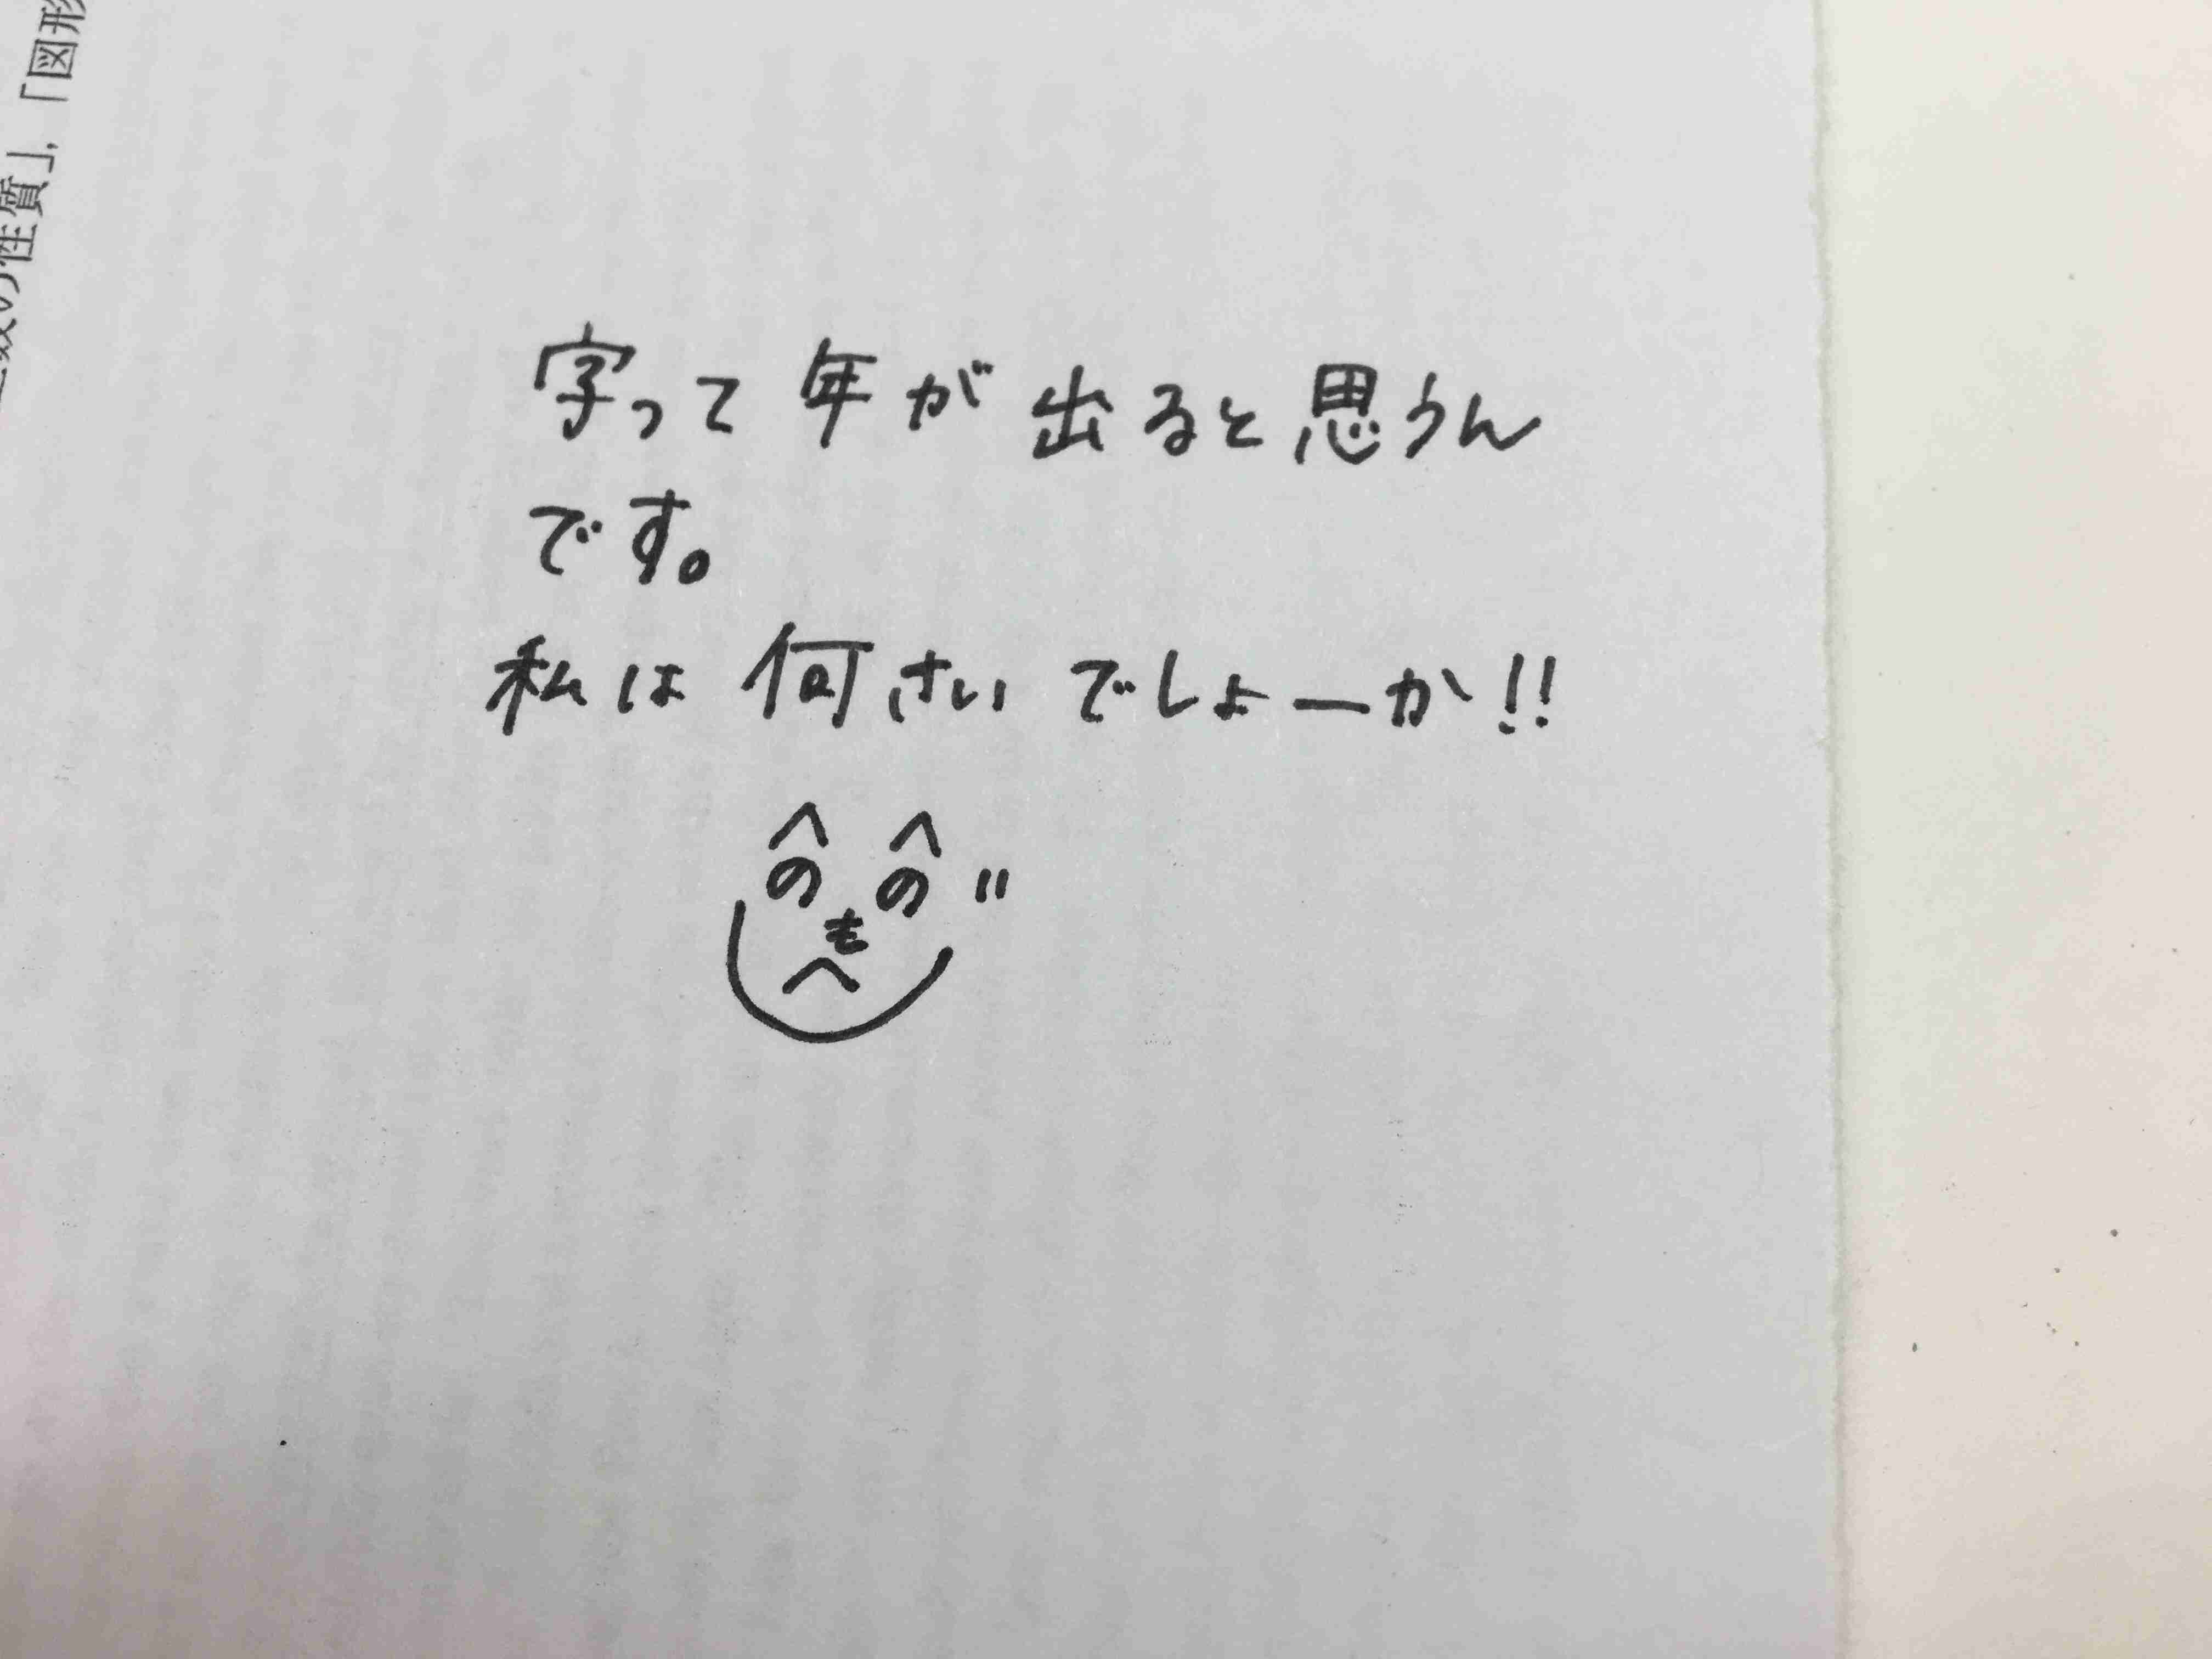 「図形
数の性質」,
字って年が出ると思うん
です。
私は何さいでしょーか!!
へ へ
の の "
も
へ